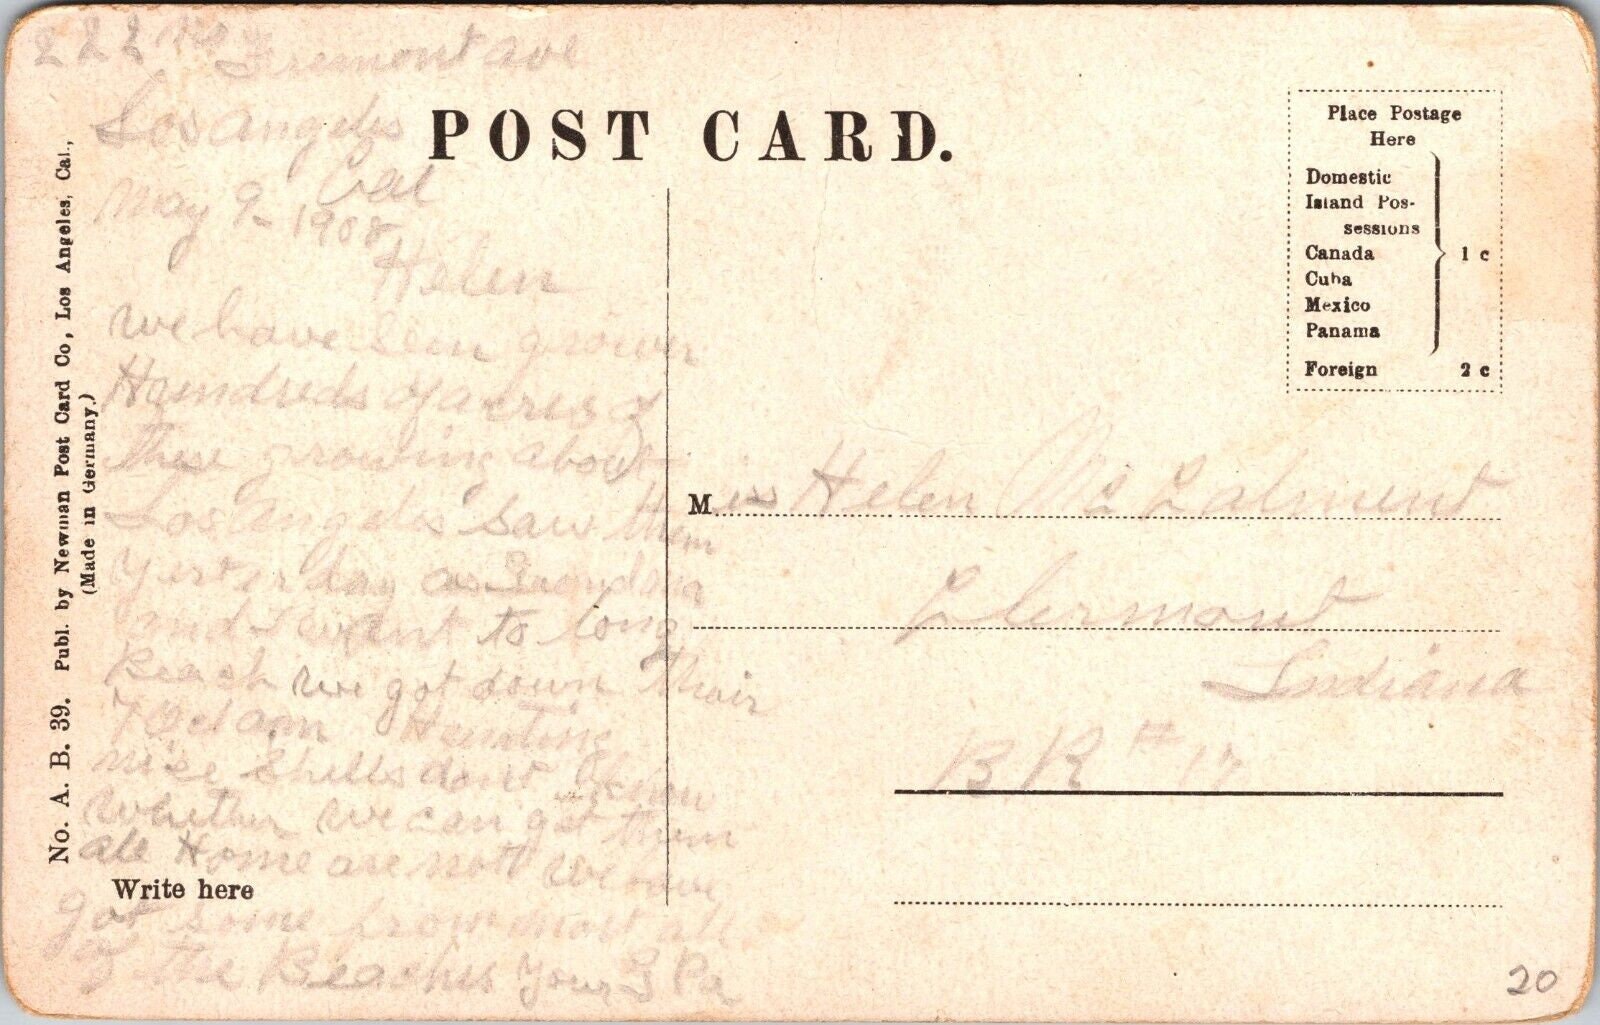 222 Fremont ave
Los Angeles
Cal
May 9 - 1908
Helen
we have seen
Hundreds of acres of
these growing about
Los Angeles Saw them
yesterday as Grandma
and I want to Long
Beach we got down thair
Hunting
nise Shells dont Know
Whether we can get them
all Home are nott we have
got some from most all
of the Beaches Your G Pa
Write here
No. A. B. 39. Publ. by Newman Post Card Co, Los Angeles, Cal.,
(Made in Germany.)
POST CARD.
Place Postage
Here
Domestic
Island Pos-
sessions
Canada
Cuba
Mexico
Panama
1 c
Foreign 2 c
Miss Helen Mc
Clermont
Indiana
R # 17
20